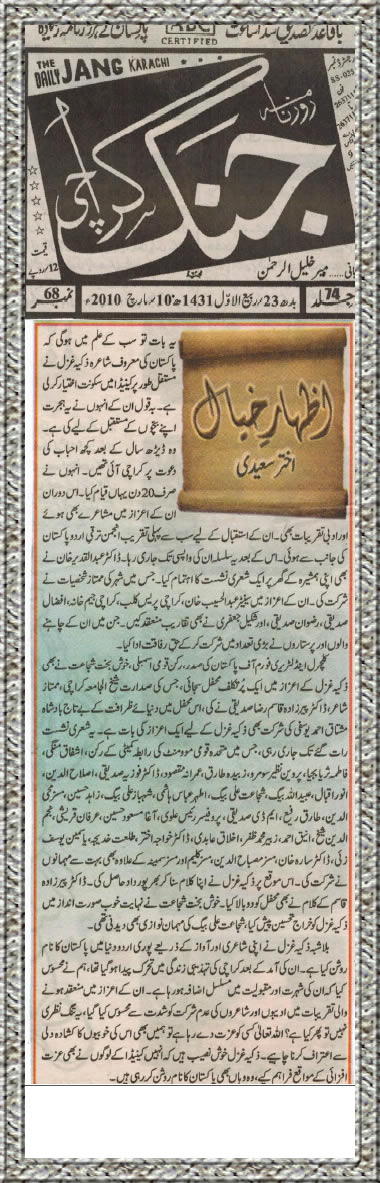 باقاعدہ تصدیق شدہ اشاعت
ABC
CERTIFIED
THE
DAILY JANG KARACHI
روزنامہ
جنگ
کراچی
قیمت
12/روپے
بانی ..... میر خلیل الرحمٰن
جلد 74
بدھ 23/ربیع الاوّل 1431ھ 10/مارچ 2010ء
نمبر 68
اظہارِ خیال
اختر سعیدی
یہ بات تو سب کے علم میں ہوگی کہ
پاکستان کی معروف شاعرہ ذکیہ غزل نے
مستقل طور پر کینیڈا میں سکونت اختیار کرلی
ہے۔ بہ قول ان کے انہوں نے یہ ہجرت
اپنے بچوں کے مستقبل کے لیے کی ہے۔
وہ ڈیڑھ سال کے بعد کچھ احباب کی
دعوت پر کراچی آئی تھیں۔ انہوں نے
صرف 20 دن یہاں قیام کیا۔ اس دوران
ان کے اعزاز میں مشاعرے بھی ہوئے
اور ادبی تقریبات بھی۔ ان کے استقبال کے لیے سب سے پہلی تقریب انجمن ترقی اردو پاکستان
کی جانب سے ہوئی۔ اس کے بعد یہ سلسلہ ان کی واپسی تک جاری رہا۔ ڈاکٹر عبدالقدیر خان نے
بھی اپنی ہمشیرہ کے گھر پر ایک شعری نشست کا اہتمام کیا۔ جس میں شہر کی ممتاز شخصیات نے
شرکت کی۔ ان کے اعزاز میں سینیٹر عبدالحسیب خان، کراچی پریس کلب، کراچی جیم خانہ، افضال
صدیقی، رضوان صدیقی، اور شکیل جعفری نے بھی تقاریب منعقد کیں۔ جن میں ان کے چاہنے
والوں اور پرستاروں نے بڑی تعداد میں شرکت کرکے حقِ رفاقت ادا کیا۔
کلچرل اینڈ لٹریری فورم آف پاکستان کی صدر، رکن قومی اسمبلی، خوش بخت شجاعت نے بھی
ذکیہ غزل کے اعزاز میں ایک پُر تکلف محفل سجائی، جس کی صدارت شیخ الجامعہ کراچی، ممتاز
شاعر، ڈاکٹر پیرزادہ قاسم رضا صدیقی نے کی، اس محفل میں دنیائے ظرافت کے بے تاج بادشاہ
مشتاق احمد یوسفی کی شرکت بھی ذکیہ غزل کے لیے ایک اعزاز کی بات ہے۔ یہ شعری نشست
رات گئے تک جاری رہی، جس میں متحدہ قومی موومنٹ کی رابطہ کمیٹی کے رکن، اشفاق منگی،
فاطمہ ثریا بجیا، پروین نظیر سومرو، زبیدہ طارق، عمرانہ مقصود، ڈاکٹر فوزیہ صدیقی، اصلاح الدین،
انور اقبال، عبید اللہ بیگ، شجاعت علی بیگ، اطہر عباس ہاشمی، شہباز علی بیگ، زاہد حسین، مسز نجمی
الدین، طارق رفیع، ایم ڈی صدیقی، پروفیسر رئیس علوی، آغا مسعود حسین، عرفان قریشی، نجم
الدین شیخ، انیق احمد، زبیر محمد ظفر، اخلاق عابدی، ڈاکٹر خواجہ اختر، طلعت خدیجہ، یاسین یوسف
زئی، ڈاکٹر سارہ خان، مسز مصباح الدین، مسز کلیم اور مسز سمینہ کے علاوہ بھی بہت سے مہمانوں
نے شرکت کی۔ اس موقع پر ذکیہ غزل نے اپنا کلام سنا کر بھرپور داد حاصل کی۔ ڈاکٹر پیرزادہ
قاسم کے کلام نے بھی محفل کو دوبالا کیا۔ خوش بخت شجاعت نے نہایت خوب صورت انداز میں
ذکیہ غزل کو خراجِ تحسین پیش کیا، شجاعت علی بیگ کی مہمان نوازی بھی دیدنی تھی۔
بلاشبہ ذکیہ غزل نے اپنی شاعری اور آواز کے ذریعے پوری اردو دنیا میں پاکستان کا نام
روشن کیا ہے۔ ان کی آمد کے بعد کراچی کی تہذیبی زندگی میں تحرک پیدا ہوگیا تھا، ہم نے محسوس
کیا کہ ان کی شہرت اور مقبولیت میں مسلسل اضافہ ہو رہا ہے۔ ان کے اعزاز میں منعقد ہونے
والی تقریبات میں ادیبوں اور شاعروں کی عدم شرکت کو شدت سے محسوس کیا گیا، یہ تنگ نظری
نہیں تو پھر کیا ہے؟ اللہ تعالیٰ کسی کو عزت دے رہا ہے تو ہمیں بھی اس کی خوبیوں کا کشادہ دلی
سے اعتراف کرنا چاہیے۔ ذکیہ غزل خوش نصیب ہیں کہ انہیں کینیڈا کے لوگوں نے بھی عزت
افزائی کے مواقع فراہم کیے، وہ وہاں بھی پاکستان کا نام روشن کر رہی ہیں۔